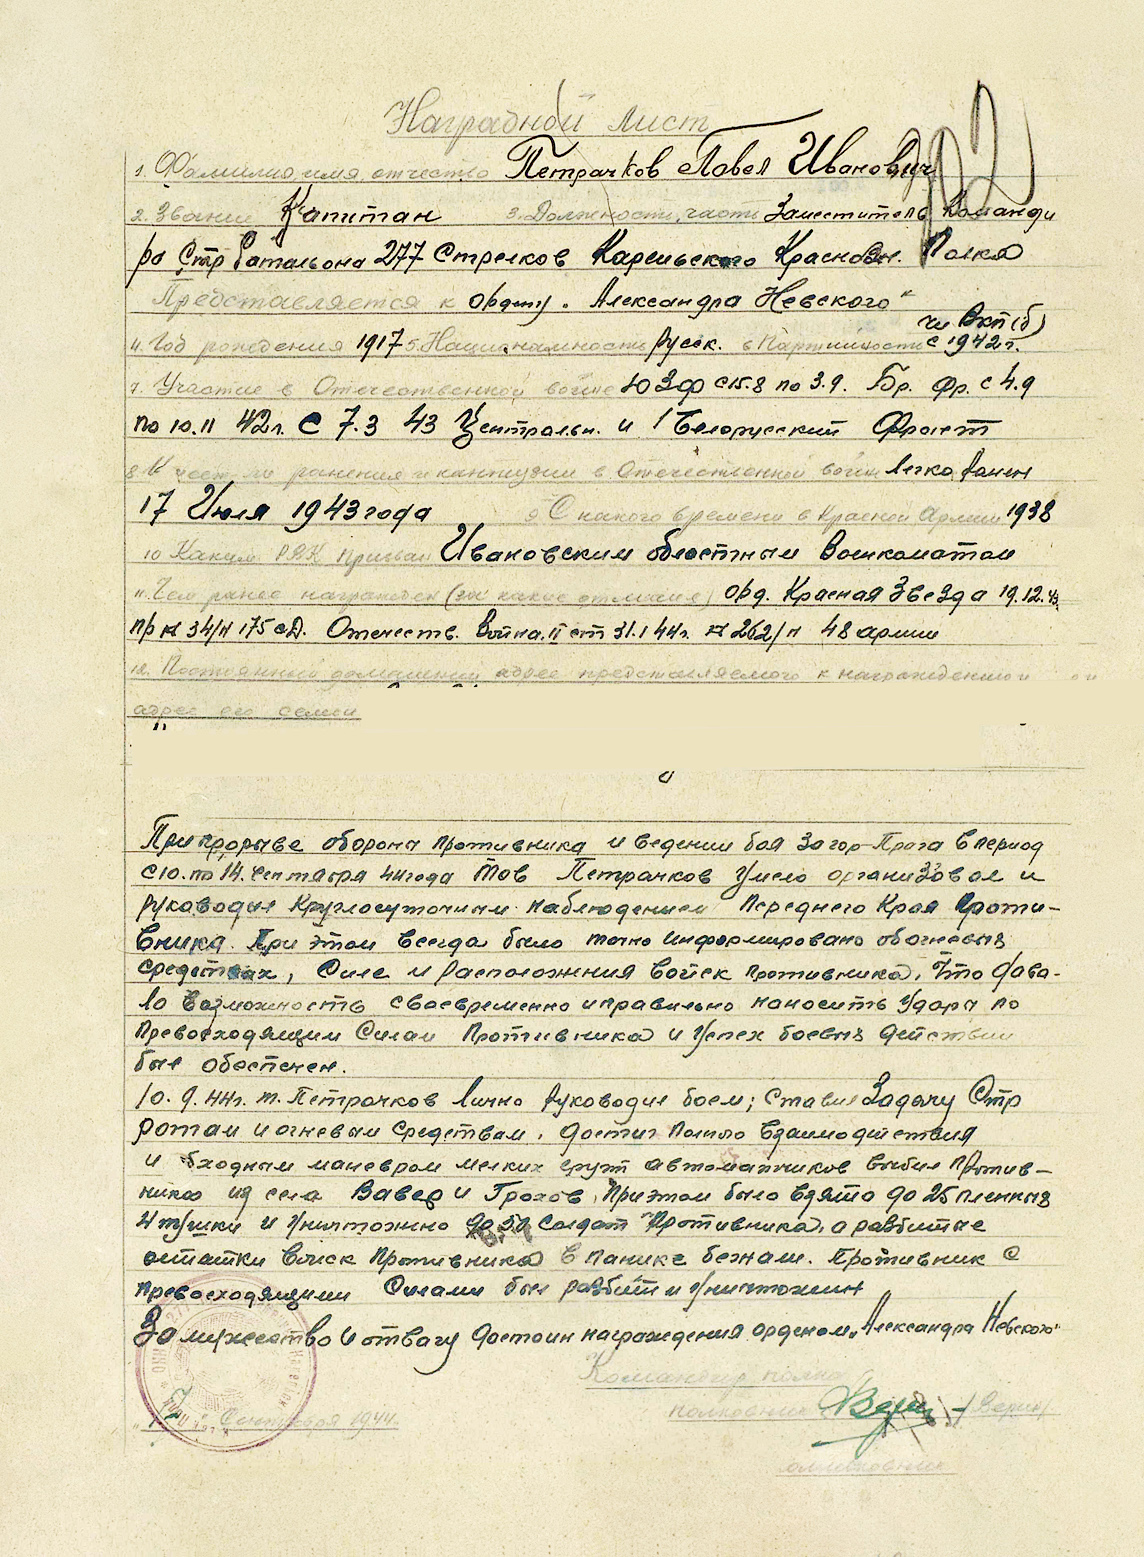 Наградной лист
1. Фамилия, имя, отчество Петрачков Павел Иванович
2. Звание Капитан 3. Должность, часть Заместитель Команди
ра Стр Батальона 277 Стрелков Карельского Краснозн. Полка
Представляется к ордену „Александра Невского"
чл ВКП(б)
4. Год рождения 1917 5. Национальность Русск. 6 Партийность с 1942 г.
7. Участие в Отечественной войне ЮЗФ с 15.8 по 3.9. Бр. Фр. с 4.9
по 10.11 42 г. С 7.3 43 Центральн. и 1 Белорусский Фронт
8. ранения и контузии в Отечественной войне Легко ранен
17 Июля 1943 года 9 С какого времени в Красной Армии 1938
10 Каким РВК призван Ивановским областным Военкоматом
11. Чем ранее награжден (за какие отличия) орд. Красная Звезда 19.12.43
пр № 34/н 175 сД. Отечеств. Война. II ст 31.1 44 г. № 262/н 48 армии
12. Постоянный домашний адрес представляемого к награждению и
адрес его семьи
При прорыве обороны противника и ведении боя за гор Прага в период
с 10. по 14. сентября 44 года тов Петрачков умело организовал и
руководил круглосуточным наблюдением переднего края проти-
вника. При этом всегда было точно информировано об огневых
средствах, силе и расположения войск противника, что дава-
ло возможность своевременно и правильно наносить удары по
превосходящим силам противника и успех боевых действий
был обеспечен.
10. 9. 44 г. т. Петрачков лично руководил боем; ставил задачу стр
ротам и огневым средствам, достиг полного взаимодействия
и обходным маневром мелких групп автоматчиков выбил против-
ника из села Вавер и Грохов, при этом было взято до 25 пленных
4 пушки и уничтожено до солдат противника, а разбитые
остатки войск противника в панике бежали. Противник с
превосходящими силами был разбит и уничтожен
За мужество и отвагу достоин награждения орденом „Александра Невского"
Командир полка
полковник /Верин/
" Сентября 1944 г.